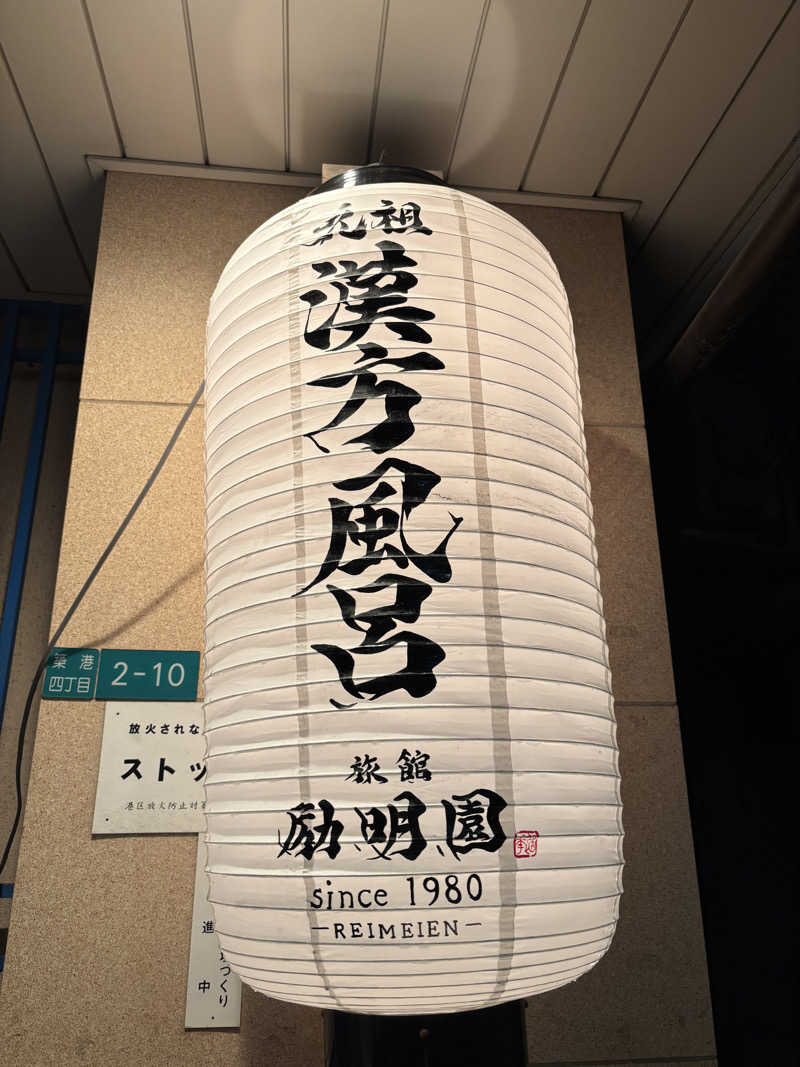 元祖
漢方風呂
旅館
励明園
since 1980
-REIMEIEN-
築港
四丁目
2-10
放火されな
ストッ
港区放火防止対
進
づくり
中